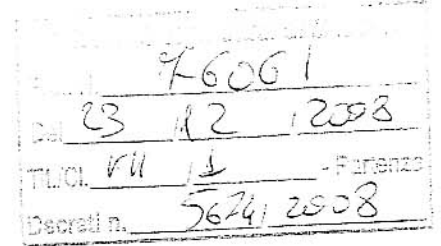 76061
Del 23 / 12 / 2008
Tit./Cl. VII / 1 - Partenza
Decreti n. 5674 / 2008